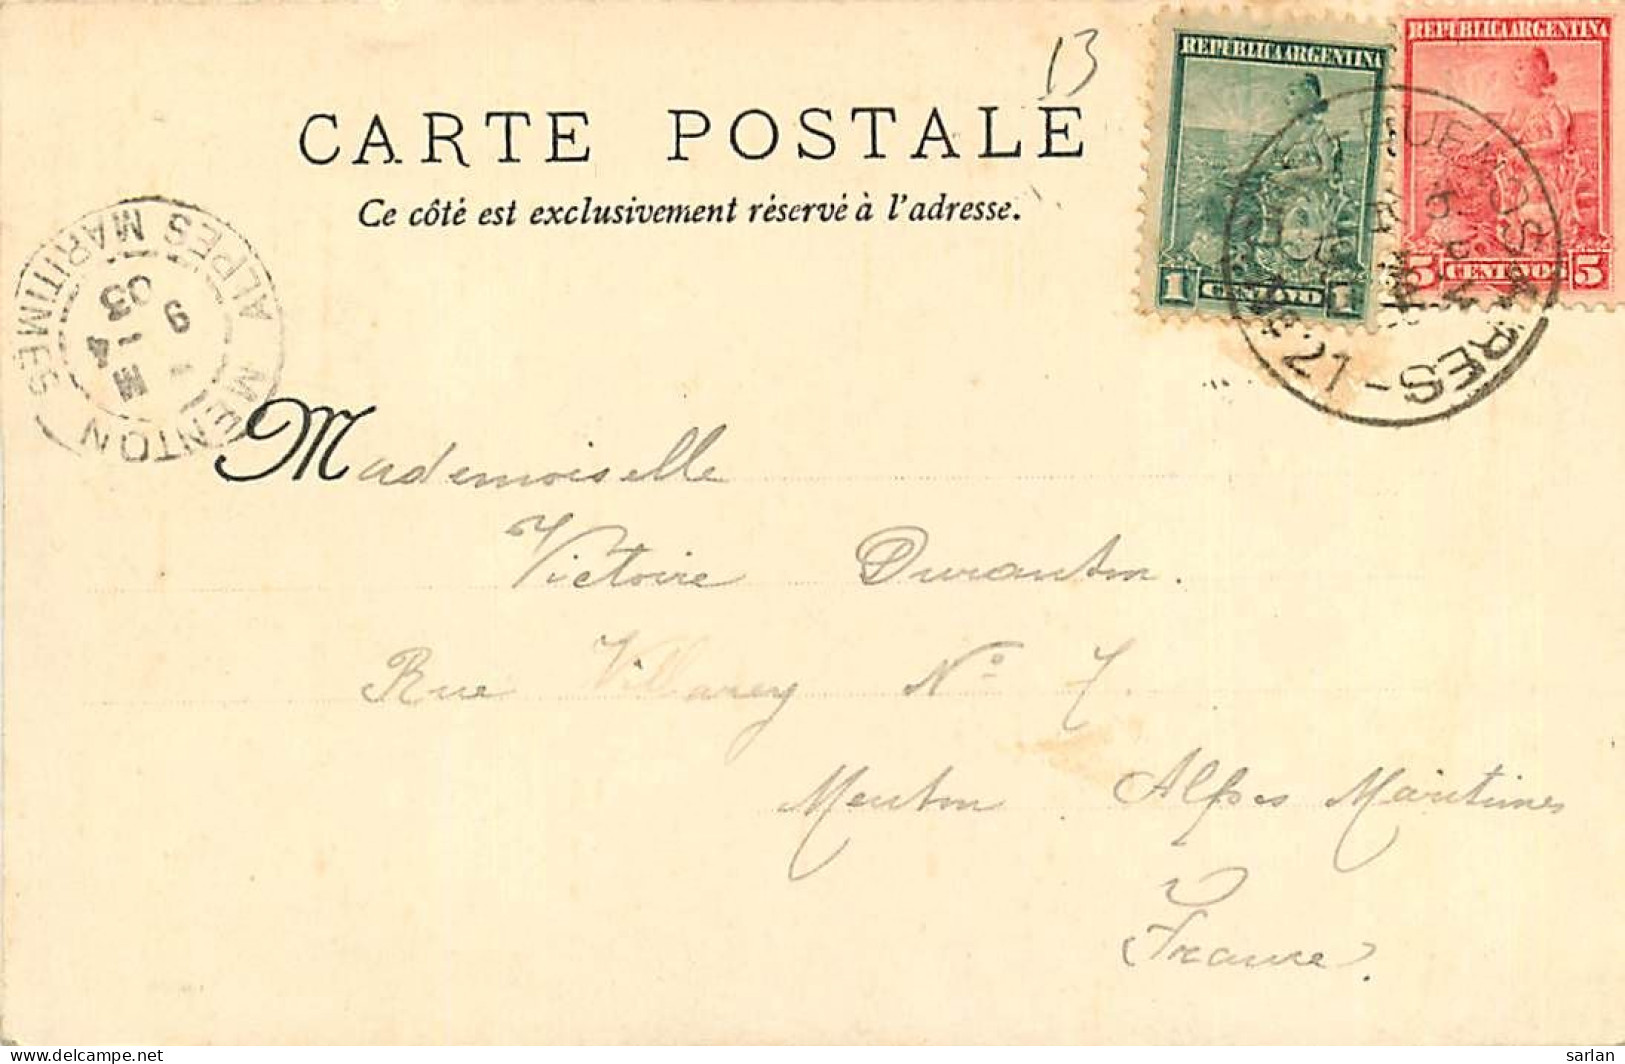 13
REPUBLICA ARGENTINA
REPUBLICA ARGENTINA
CARTE POSTALE
Ce côté est exclusivement réservé à l'adresse.
1 CENTAVO 1
5 CENTAVOS 5
21
MENTON
ALPES MARITIMES
9
4
03
Mademoiselle
Victoire Duranton.
Rue Villarey No 7.
Menton Alpes Maritimes
France.
Sarlan
delcampe.net